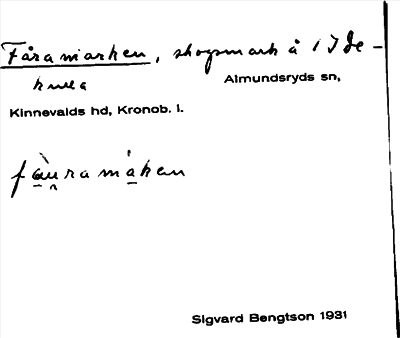 Fåramarken, skogsmark å Ide-
kulla
Almundsryds sn,
Kinnevalds hd, Kronob. l.
fàu̯ramákan
Sigvard Bengtson 1931